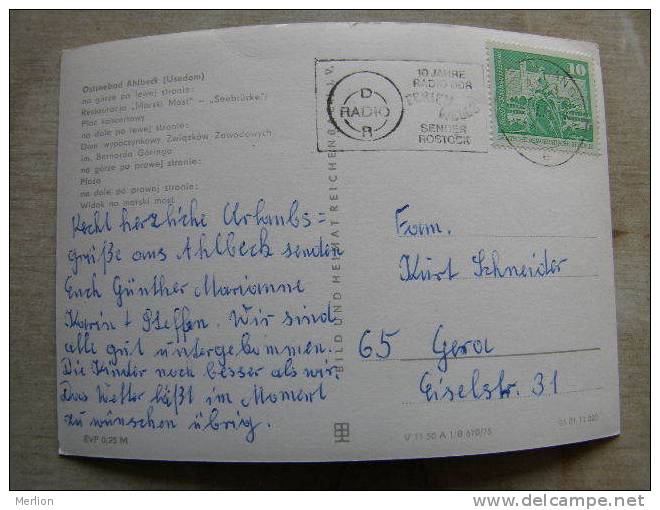 Ostseebad Ahlbeck (Usedom)
na górze po lewej stronie:
Restauracja „Morski Most" – „Seebrücke"
Plac koncertowy
na dole po lewej stronie:
Dom wypoczynkowy Związków Zawodowych
im. Bernarda Göringa
na górze po prawej stronie:
Plaża
na dole po prawej stronie:
Widok na morski most
Recht herzliche Urlaubs=
grüße aus Ahlbeck senden
Euch Günther Marianne
Karin + Steffen. Wir sind
alle gut untergekommen.
Die Kinder noch besser als wir.
Das Wetter läßt im Moment
zu wünschen übrig.
EvP 0,25 M
BILD UND HEIMAT REICHENBACH I. V.
D
RADIO
R
10 JAHRE
RADIO DDR
FERIEN
WELLE
SENDER
ROSTOCK
10
Fam.
Kurt Schneider
65 Gera
Eiselstr. 31
V 11 50 A 1/B 610/75
Merlion
www.delcampe.net